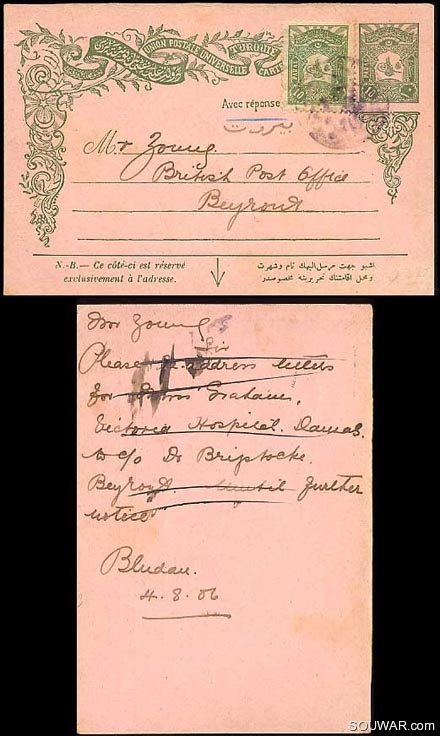 UNION POSTALE UNIVERSELLE
TURQUIE
CARTE
PARAS
10
10
Avec réponse
بيروت
Mr Young
British Post Office
Beyrout
N.-B.— Ce côté-ci est réservé
exclusivement à l'adresse.
Mr Young
Sir
Please re-address letters
for Miss Graham,
Victoria Hospital. Damas.
to c/o Dr Briggstocke.
Beyrout. until further
notice
Bludan.
4.8.06
SOUWAR.COM